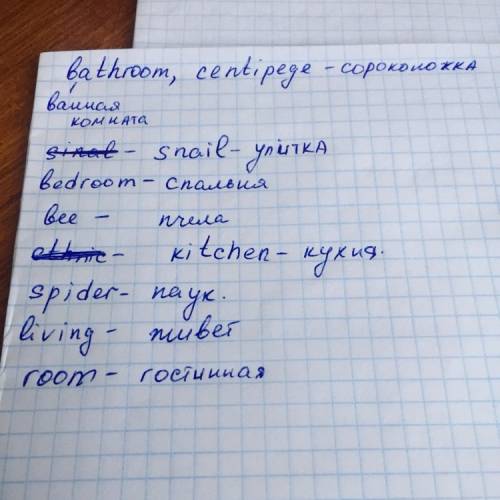 bathroom, centipege - сороконожка
ванная
комната
sinal - snail - улитка
bedroom - спальня
bee - пчела
ethnic - kitchen - кухня.
spider - паук.
living - живет
room - гостинная